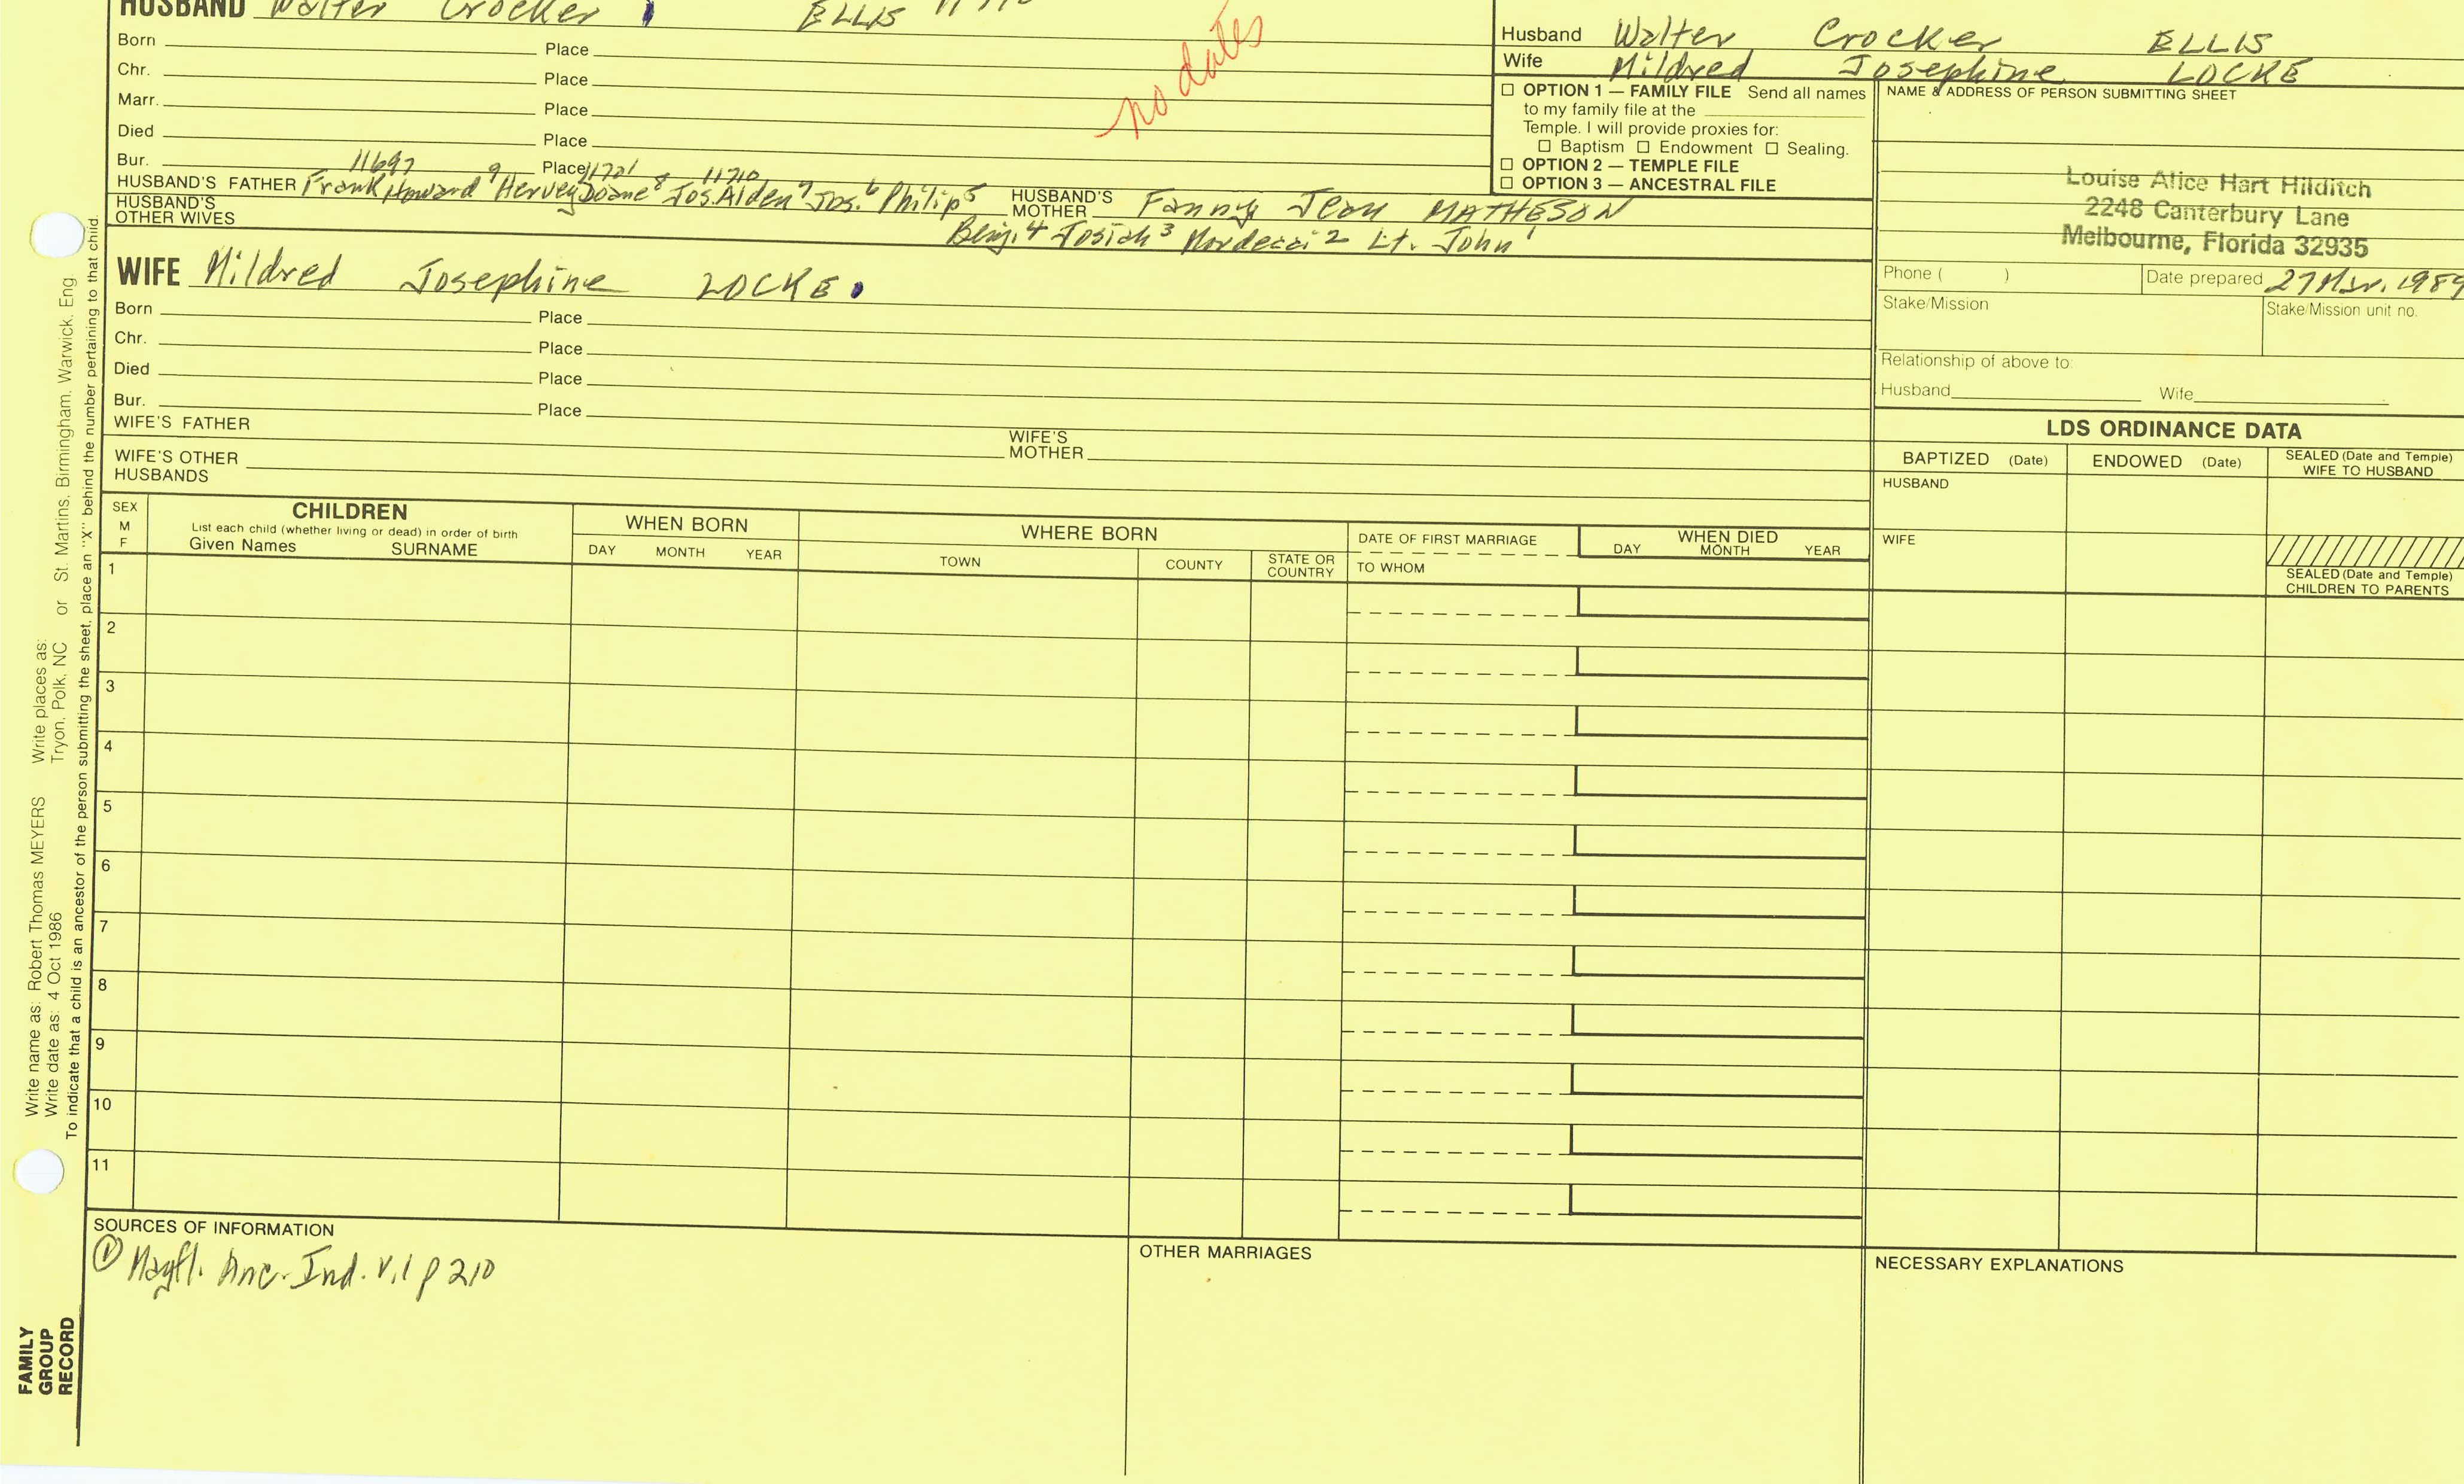 HUSBAND Walter Crocker ELLIS
Born Place
Chr. Place
Marr. Place
Died Place
Bur. Place
no dates
11697 11721 11710
HUSBAND'S FATHER Frank Howard 9 Hervey Doane 8 Jos. Alden 7 Jos. 6 Philip 5 HUSBAND'S MOTHER Fanny Jean MATHESON
HUSBAND'S OTHER WIVES
Benj. 4 Josiah 3 Mordecai 2 Lt. John 1
WIFE Mildred Josephine LOCKE
Born Place
Chr. Place
Died Place
Bur. Place
WIFE'S FATHER
WIFE'S MOTHER
WIFE'S OTHER HUSBANDS
Husband Walter Crocker ELLIS
Wife Mildred Josephine LOCKE
☐ OPTION 1 — FAMILY FILE Send all names
to my family file at the
Temple. I will provide proxies for:
☐ Baptism ☐ Endowment ☐ Sealing.
☐ OPTION 2 — TEMPLE FILE
☐ OPTION 3 — ANCESTRAL FILE
NAME & ADDRESS OF PERSON SUBMITTING SHEET
Louise Alice Hart Hilditch
2248 Canterbury Lane
Melbourne, Florida 32935
Phone ( ) Date prepared 27 Mar. 1989
Stake/Mission Stake/Mission unit no.
Relationship of above to:
Husband Wife
LDS ORDINANCE DATA
BAPTIZED (Date) ENDOWED (Date) SEALED (Date and Temple)
WIFE TO HUSBAND
HUSBAND
WIFE
SEALED (Date and Temple)
CHILDREN TO PARENTS
SEX
M
F
CHILDREN
List each child (whether living or dead) in order of birth
Given Names SURNAME
WHEN BORN
DAY MONTH YEAR
WHERE BORN
TOWN COUNTY STATE OR COUNTRY
DATE OF FIRST MARRIAGE
TO WHOM
WHEN DIED
DAY MONTH YEAR
1
2
3
4
5
6
7
8
9
10
11
SOURCES OF INFORMATION
① Mayfl. Anc. Ind. V.1 p 210
OTHER MARRIAGES
NECESSARY EXPLANATIONS
Write name as: Robert Thomas MEYERS Write places as:
Write date as: 4 Oct 1986 Tryon, Polk, NC or St. Martins, Birmingham, Warwick, Eng
To indicate that a child is an ancestor of the person submitting the sheet, place an "X" behind the number pertaining to that child.
FAMILY
GROUP
RECORD